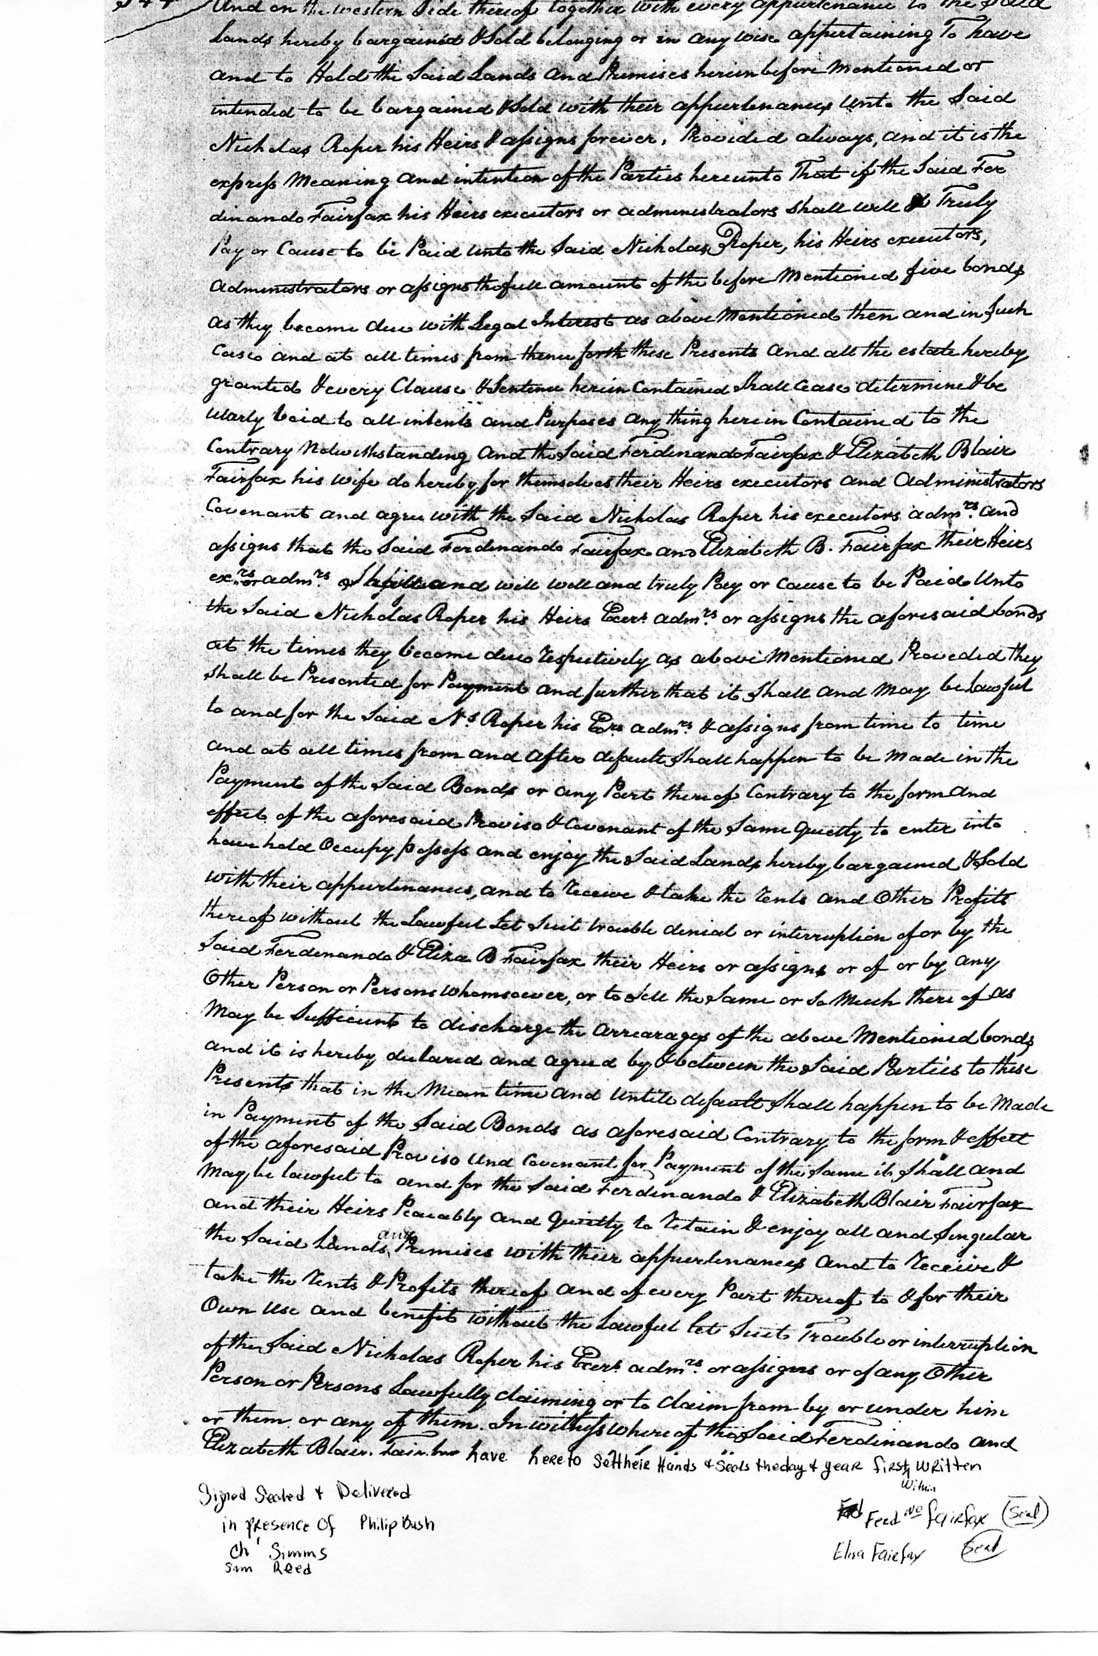 And on the western Side thereof together with every appurtenance to the Said
Lands hereby bargained & Sold belonging or in any wise appertaining To have
and to Hold the Said Lands and Premises herein before Mentioned or
intended to be bargained & Sold with their appurtenances Unto the Said
Nicholas Roper his Heirs & assigns forever. Provided always, and it is the
express Meaning and intention of the Parties hereunto That if the Said Fer
dinando Fairfax his Heirs executors or administrators Shall well & Truly
Pay or Cause to be Paid Unto the Said Nicholas Roper, his Heirs executors,
administrators or assigns the full amount of the before Mentioned five bonds
as they become due with Legal Interest as above Mentioned then and in Such
Case and at all times from thence forth these Presents and all the estate hereby
granted & every Clause & Sentence herein Contained Shall Cease determine & be
Utarly Void to all intents and Purposes any thing herein Contained to the
Contrary Notwithstanding And the Said Ferdinando Fairfax & Elizabeth Blair
Fairfax his wife do hereby for themselves their Heirs executors and Administrators
Covenant and agree with the Said Nicholas Roper his executors admrs. and
assigns that the Said Ferdinando Fairfax and Elizabeth B. Fairfax their Heirs
exrs. or admrs. or Shall and will well and truly Pay or cause to be Paid Unto
the Said Nicholas Roper his Heirs Exers. admrs. or assigns the aforesaid bonds
at the times they become due respectively as above Mentioned Proveded they
Shall be Presented for Payment and further that it Shall and May be Lawful
to and for the Said Ns. Roper his Exrs admrs. & assigns from time to time
and at all times from and after default Shall happen to be Made in the
Payment of the Said Bonds or any Part thereof Contrary to the form and
effect of the aforesaid Proviso & Covenant of the Same Quietly to enter into
have hold Occupy possess and enjoy the Said Lands hereby bargained & Sold
with their appurtenances, and to receive & take the rents and Other Profits
thereof without the Lawful Let Suit trouble denial or interruption of or by the
Said Ferdinando & Eliza B Fairfax their Heirs or assigns or of or by any
Other Person or Persons whomsoever, or to Sell the Same or So Much there of as
May be Sufficient to discharge the arrearages of the above Mentioned bonds
and it is hereby declared and agreed by & between the Said Parties to these
Presents that in the Mean time and Untill default Shall happen to be Made
in Payment of the Said Bonds as aforesaid Contrary to the form & effect
of the aforesaid Proviso and Covenant for Payment of the Same it Shall and
May be lawful to and for the Said Ferdinando & Elizabeth Blair Fairfax
and their Heirs Peacably and Quietly to retain & enjoy all and Singular
the Said Lands and Premises with their appurtenances and to receive &
take the rents & Profits thereof and of every Part thereof to & for their
Own Use and benefit without the Lawful let Suit Trouble or interruption
of the Said Nicholas Roper his Exers. admrs. or assigns or of any Other
Person or Persons Lawfully claiming or to claim from by or under him
or them or any of them. In witness where of the Said Ferdinando and
Elizabeth Blair Fairfax have here to Set their Hands & Seals the day & year first written
Within
Signed Sealed & Delivered
in presence of Philip Bush
Chs Simms
Sam Reed
Ferdno Fairfax (Seal)
Eliza Fairfax (Seal)